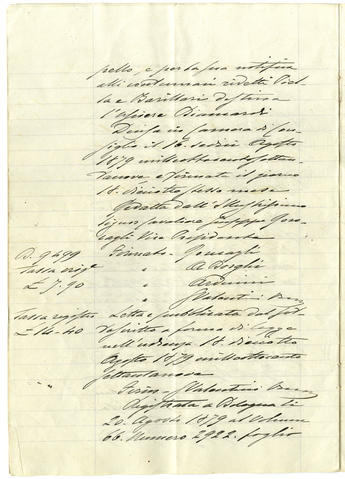 pello, e per la sua notifica
alli contumaci ridetti Piet-
ta e Barillari destina
l'Usciere Diamardi
Decisa in Camera di Con-
siglio il 16. sedici Agosto
1879 milleottocentosettan-
tanove e firmata il giorno
18. dieciotto stesso mese
Redatta dall'Illustrissimo
Signor Cavaliere Giuseppe Gon-
zagli Vice Presidente
B. 9499 Firmato - Gonzagli
Tassa orig.e " A Borghi
£ 7.90 " Arduini
" Valentini
Tassa registro Letta e pubblicata dal sot-
£ 14-40 toscritto a forma di legge
nell'udienza 18. dieciotto
Agosto 1879 milleottocento
settantanove
Firm. Valentini
Registrata a Bologna li
20. Agosto 1879 al Volume
66. Numero 2922. foglio